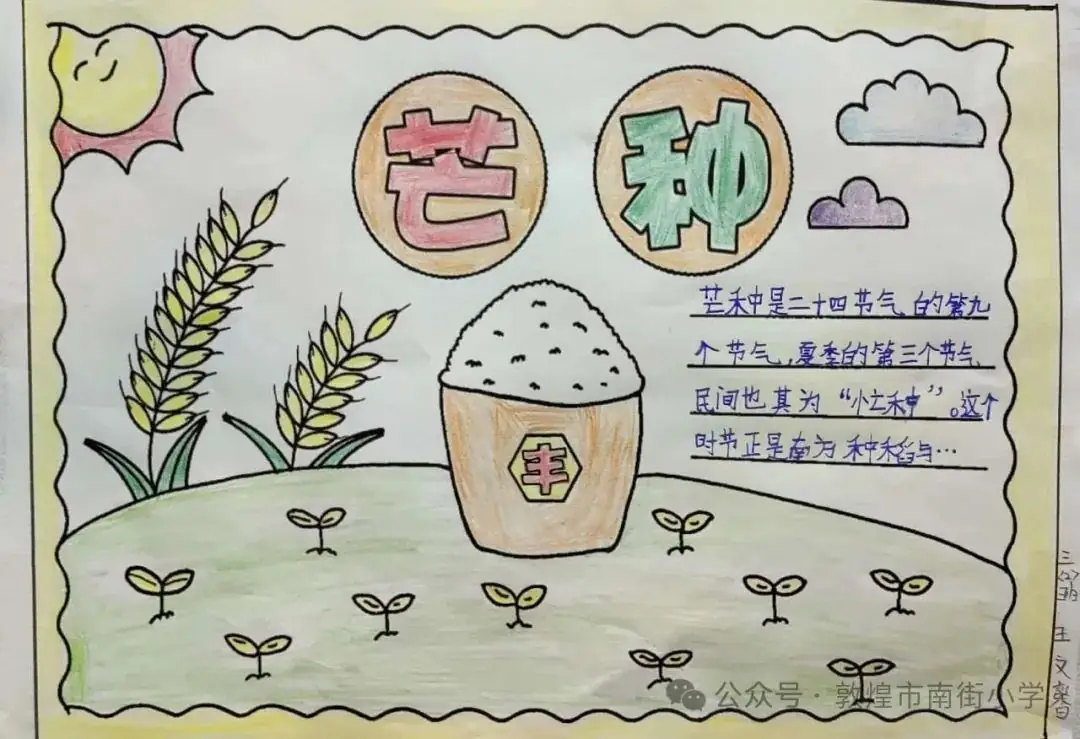 芒种
芒种是二十四节气的第九
个节气,夏季的第三个节气
民间也其为“忙种”。这个
时节正是南方种稻与…
丰
三(2)班 王文
公众号·敦煌市南街小学